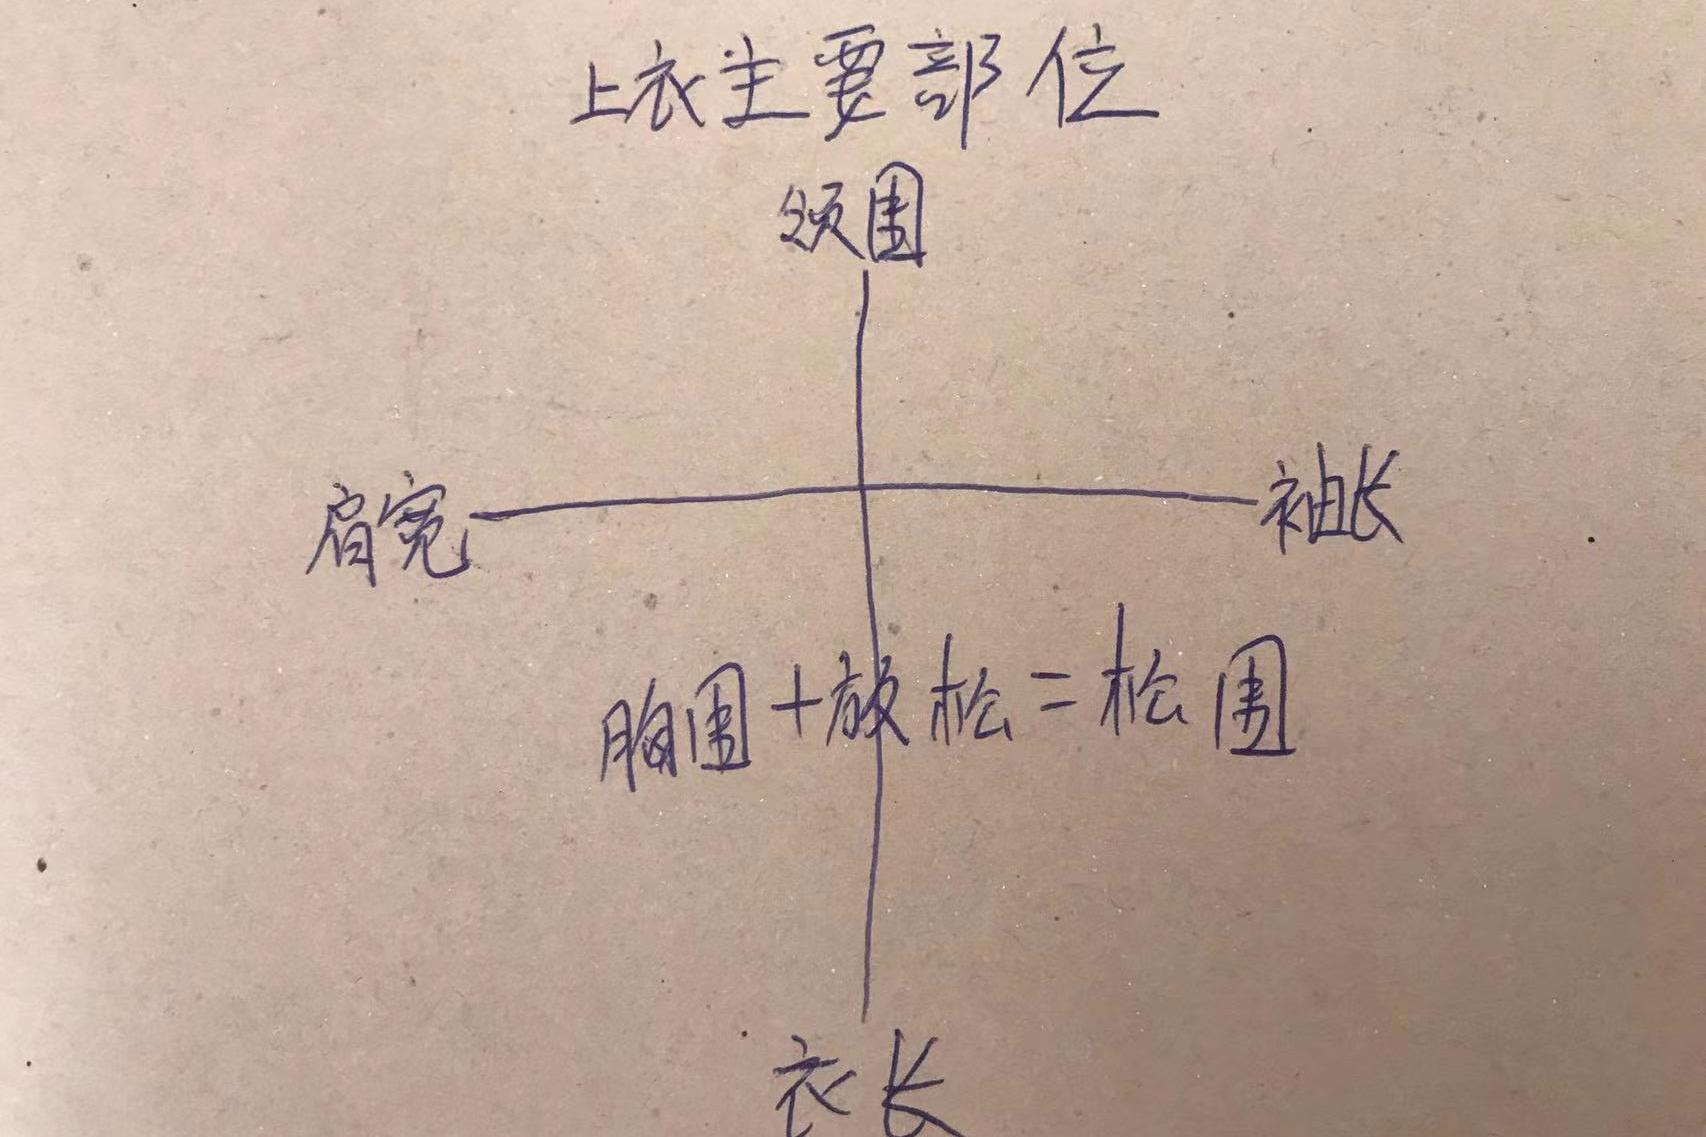 上衣主要部位
领围
肩宽
袖长
胸围+放松=松围
衣长